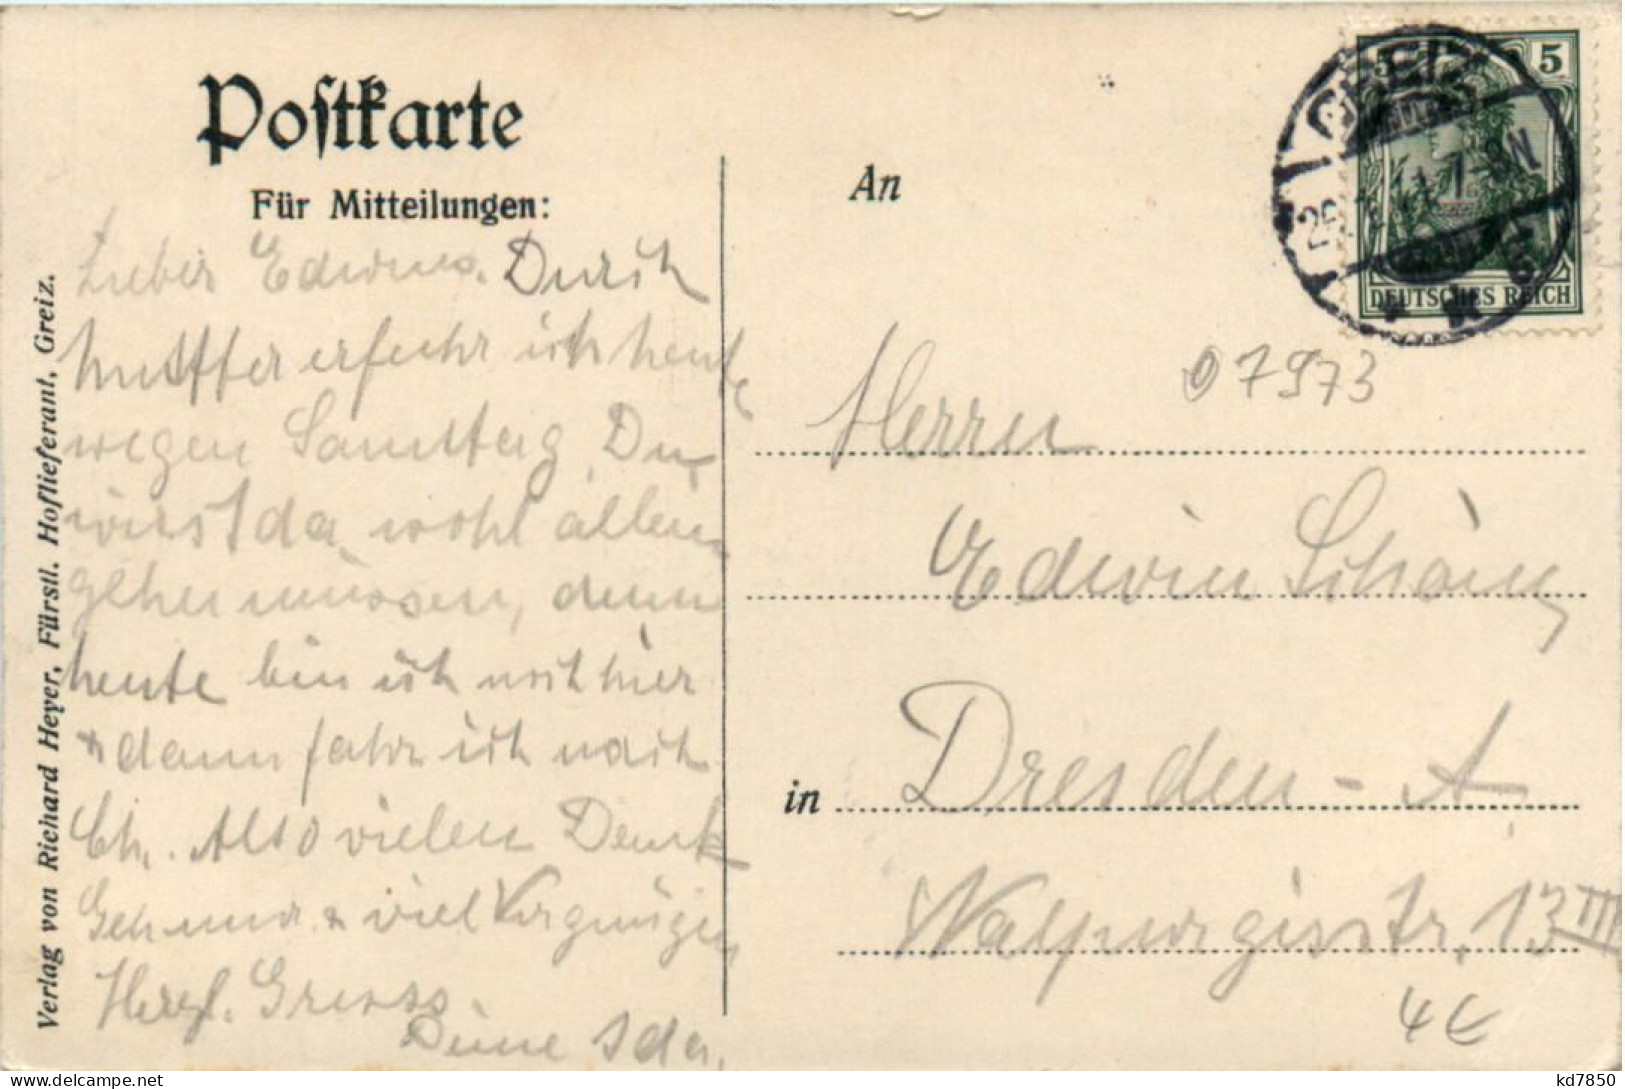 Postkarte
Für Mitteilungen:
Lieber Edwin. Durch
Mutter erfuhr ich heute
wegen Samstag. Du
wirst da wohl allein
gehen müssen, denn
heute bin ich noch hier
+ dann fahr ich nach
Ch. Also vielen Dank
Geh nur + viel Vergnügen
Herzl. Gruss.
Deine Ida.
Verlag von Richard Heyer, Fürstl. Hoflieferant, Greiz.
5 5
GREIZ
DEUTSCHES REICH
An
07973
Herrn
Edwin
in Dresden - A
Walpurgisstr. 13 III
4€
kd7850